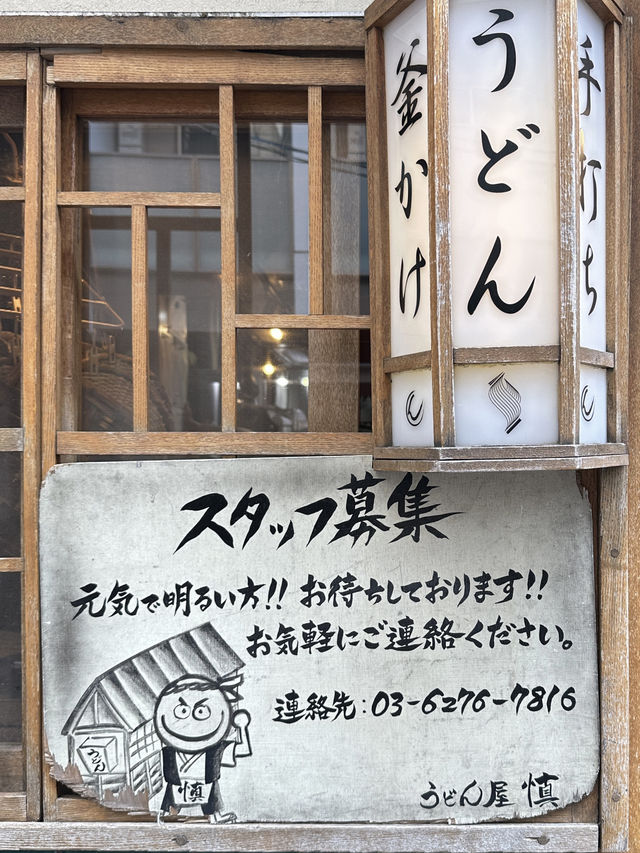 手打ち
うどん
釜かけ
スタッフ募集
元気で明るい方!! お待ちしております!!
お気軽にご連絡ください。
連絡先:03-6276-7816
うどん
慎
うどん屋 慎